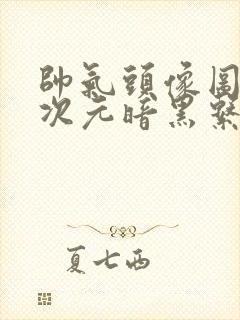 帥氣頭像圖
次元暗黑繫
夏七西